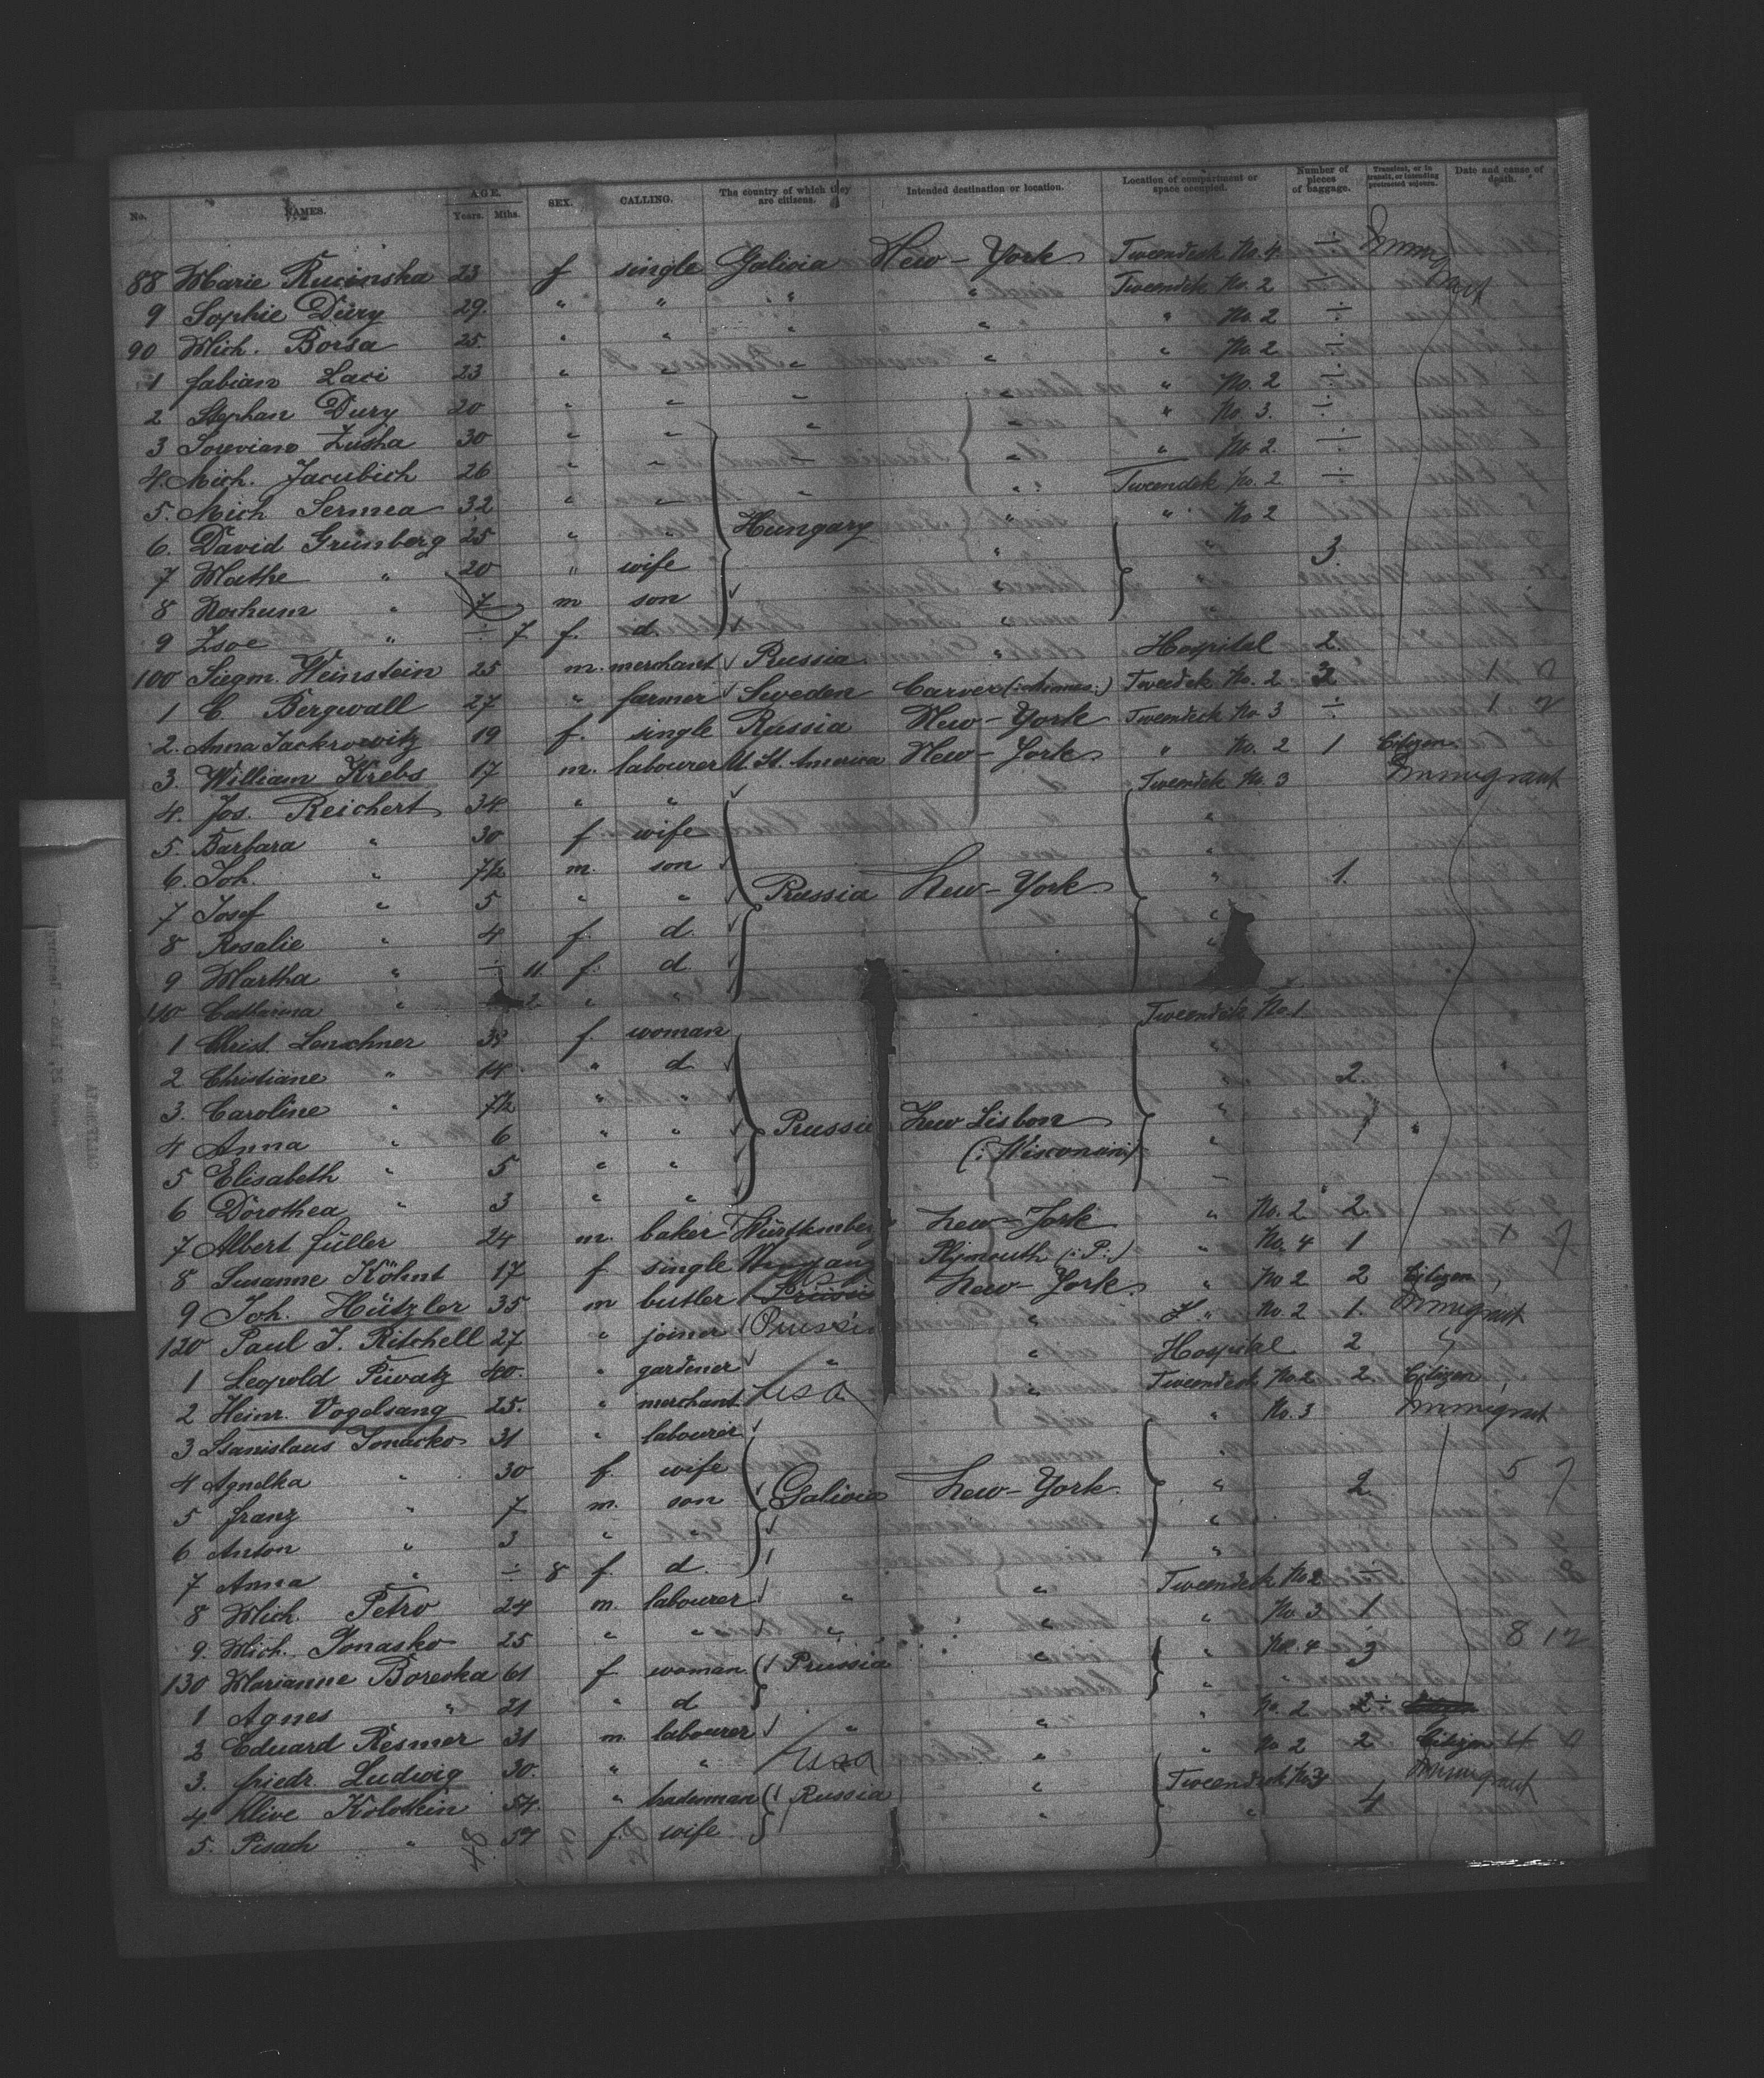 No. NAMES. AGE. Years. Mths. SEX. CALLING. The country of which they are citizens. Intended destination or location. Location of compartment or space occupied. Number of pieces of baggage. Transient, or in transit, or intending protracted sojourn. Date and cause of death.
88 Marie Rucinska 23 f single Galicia New-York Tweendeck No. 4. ÷ Immigrant
9 Sophie Dury 29. " " " " Tweendek No. 2 ÷
90 Mich. Borsa 25. " " " " " No. 2 ÷
1 Fabian Laci 23 " " " " " No. 2 ÷
2 Stephan Dury 20 " " " " " No. 2 ÷
3 Soreviano Zusha 30 " " " " " No. 3. ÷
4. Mich. Jacubich 26 " " " " " No. 2. ÷
5. Mich Sermea 32 " " " " Tweendek No. 2 ÷
6. David Grünberg 25 " " Hungary " " No 2
7 Mathe " 20 " wife " " 3
8 Nochum " 7 m son
9 Zsoe " ÷ 7 f. d. "
100 Siegm. Weinstein 25 m. merchant Russia " Hospital 2.
1 C. Bergwall 27 " farmer Sweden Carver (: Minnes.:) Tweedek No. 2 3
2. Anna Jackrowitz 19 f. single Russia New-York Tweendeck No 3 ÷
3. William Krebs 17 m. labourer U. St. America New-York " No. 2 1 Citizen
4. Jos. Reichert 34 " " Tweendek No. 3 Immigrant
5. Barbara " 30 f wife "
6. Joh. " 7½ m. son "
7 Josef " 5 " " Russia New-York " 1.
8 Rosalie " 4 f. d. "
9 Martha " ÷ 11 f. d. "
110 Catharina " 2 " "
1 Christ. Lenschner 38 f. woman Tweendek No. 1
2 Christiane " 14 " d.
3. Caroline " 7½ " " 2.
4 Anna " 6 " " Prussia New Lisbon "
5 Elisabeth " 5 " " (: Wisconsin:) "
6 Dorothea " 3 " "
7 Albert Füller 24 m. baker Württemberg New-York " No. 2 2.
8 Susanne Köhnt 17 f single Plymouth (: P:) " No. 4 1
9 Joh. Hützler 35 m butler New-York " No 2 2 Citizen
120 Paul J. Ritchell 27 " joiner Prussia " " No. 2 1. Immigrant
1 Leopold Piwatz 40. " gardener " " Hospital 2
2 Heinr. Vogelsang 25. " merchant USA " Tweendeck No 2 2. Citizen
3 Stanislaus Jonasko 31 " labourer " No. 3 Immigrant
4 Agnelka " 30 f. wife
5 Franz " 7 m. son Galicia New-York " 2.
6 Anton " 3 " " "
7 Anna " ÷ 8 f. d. "
8 Mich. Petro 24 m. labourer " " Tweendeck No 2 ÷
9. Mich. Jonasko 25 " " " " " No 3 1
130 Marianne Boreska 61 f woman Prussia " " No. 4 3
1 Agnes " 21 " d. "
2 Eduard Resmer 31 m labourer " " " No. 2 2
3. Friedr. Ludwig 30. " " USA " " No 2 2 Citizen
4 Klive Kolotkin 54. " tradesman Russia " Tweendeck No 3 Immigrant
5. Pisach " 57 f. wife " " 4